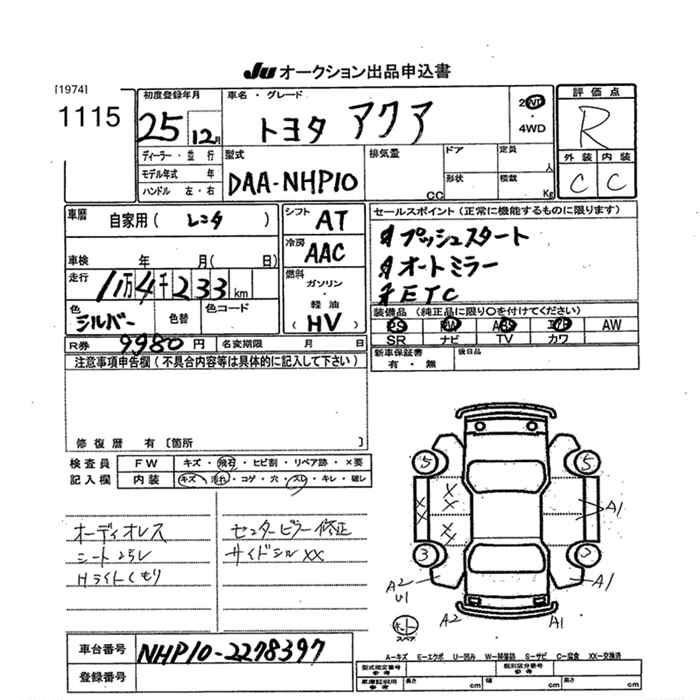 JU オークション出品申込書
[1974]
1115
初度登録年月
25 12月
車名・グレード
トヨタ アクア
2WD
・
4WD
評価点
R
外装 内装
C C
ディーラー・並行
モデル年式 年
ハンドル 左・右
型式
DAA-NHP10
排気量
CC
ドア
形状
定員
人
積載
Kg
車歴
自家用( レンタ )
車検 年 月( 日)
走行
11万4千233km
色
シルバー
色替
色コード
シフト
AT
冷房
AAC
燃料
ガソリン
・
軽油
(HV)
セールスポイント(正常に機能するものに限ります)
プッシュスタート
オートミラー
ETC
装備品(純正品に限り○を付けてください)
PS PW ABS エアB AW
SR ナビ TV カワ
R券 9980円
名変期限 月 日
新車保証書
有・無
後日品
注意事項申告欄(不具合内容等は具体的に記入して下さい)
修復歴 有[箇所 ]
検査員
記入欄
FW キズ・飛石・ヒビ割・リペア跡・×要
内装 キズ・汚れ・コゲ・穴・スレ・キレ・破レ
オーディオレス
シートコスレ
Hライトくもり
センターピラー修正
サイドシルXX
5 5
X X
X X
A1
3 3
A2
U1
A1
A2 A1
スペア
車台番号 NHP10-2278397
登録番号
A-キズ E-エクボ U-凹み W-補修跡 S-サビ C-腐食 XX-交換済
型式指定番号
参考
類別区分番号
参考
車庫証明用
参考
長さ cm
幅 cm
高さ cm